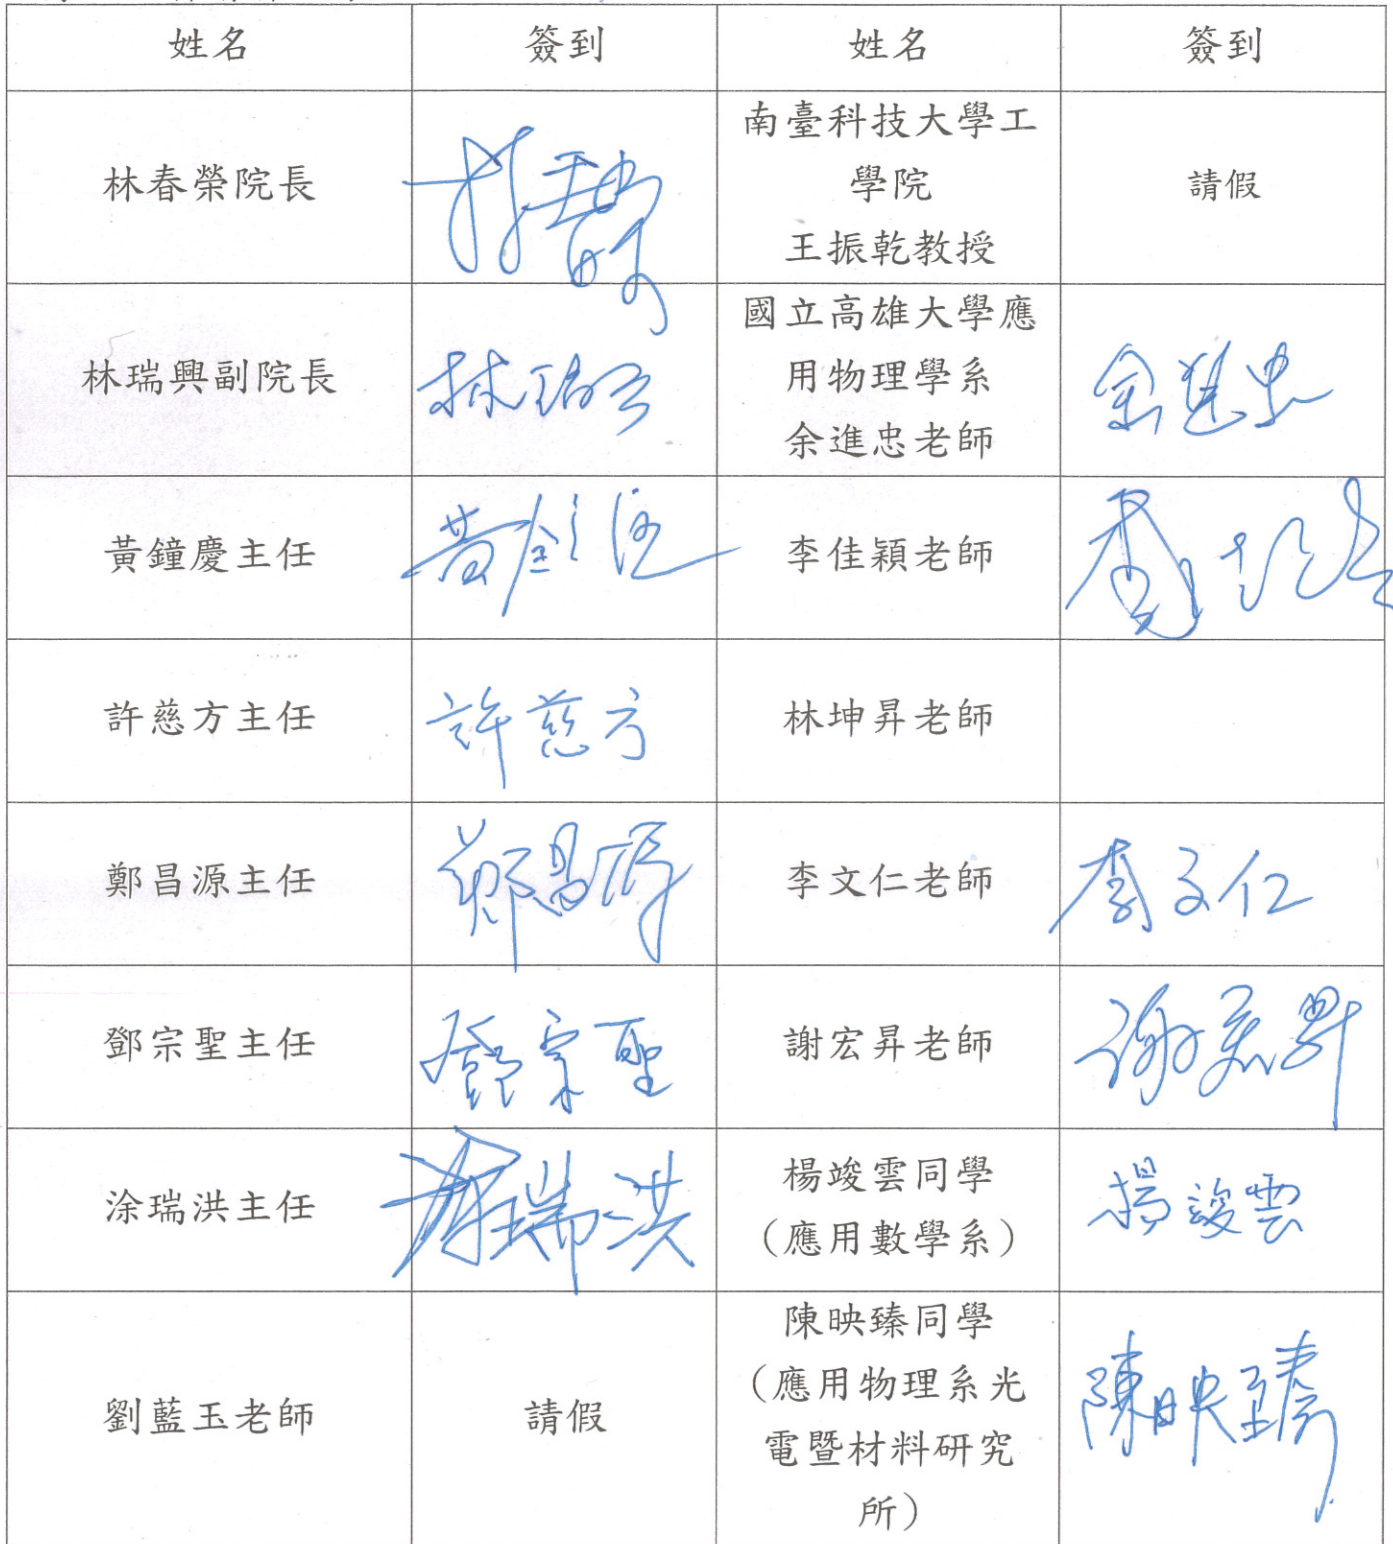 姓名 簽到 姓名 簽到
林春榮院長
南臺科技大學工
學院
王振乾教授
請假
林瑞興副院長
林瑞興
國立高雄大學應
用物理學系
余進忠老師
余進忠
黃鐘慶主任
李佳穎老師
許慈方主任
許慈方
林坤昇老師
鄭昌源主任
鄭昌源
李文仁老師
李文仁
鄧宗聖主任
鄧宗聖
謝宏昇老師
謝宏昇
涂瑞洪主任
涂瑞洪
楊竣雲同學
（應用數學系）
楊竣雲
劉藍玉老師
請假
陳映臻同學
（應用物理系光
電暨材料研究
所）
陳映臻